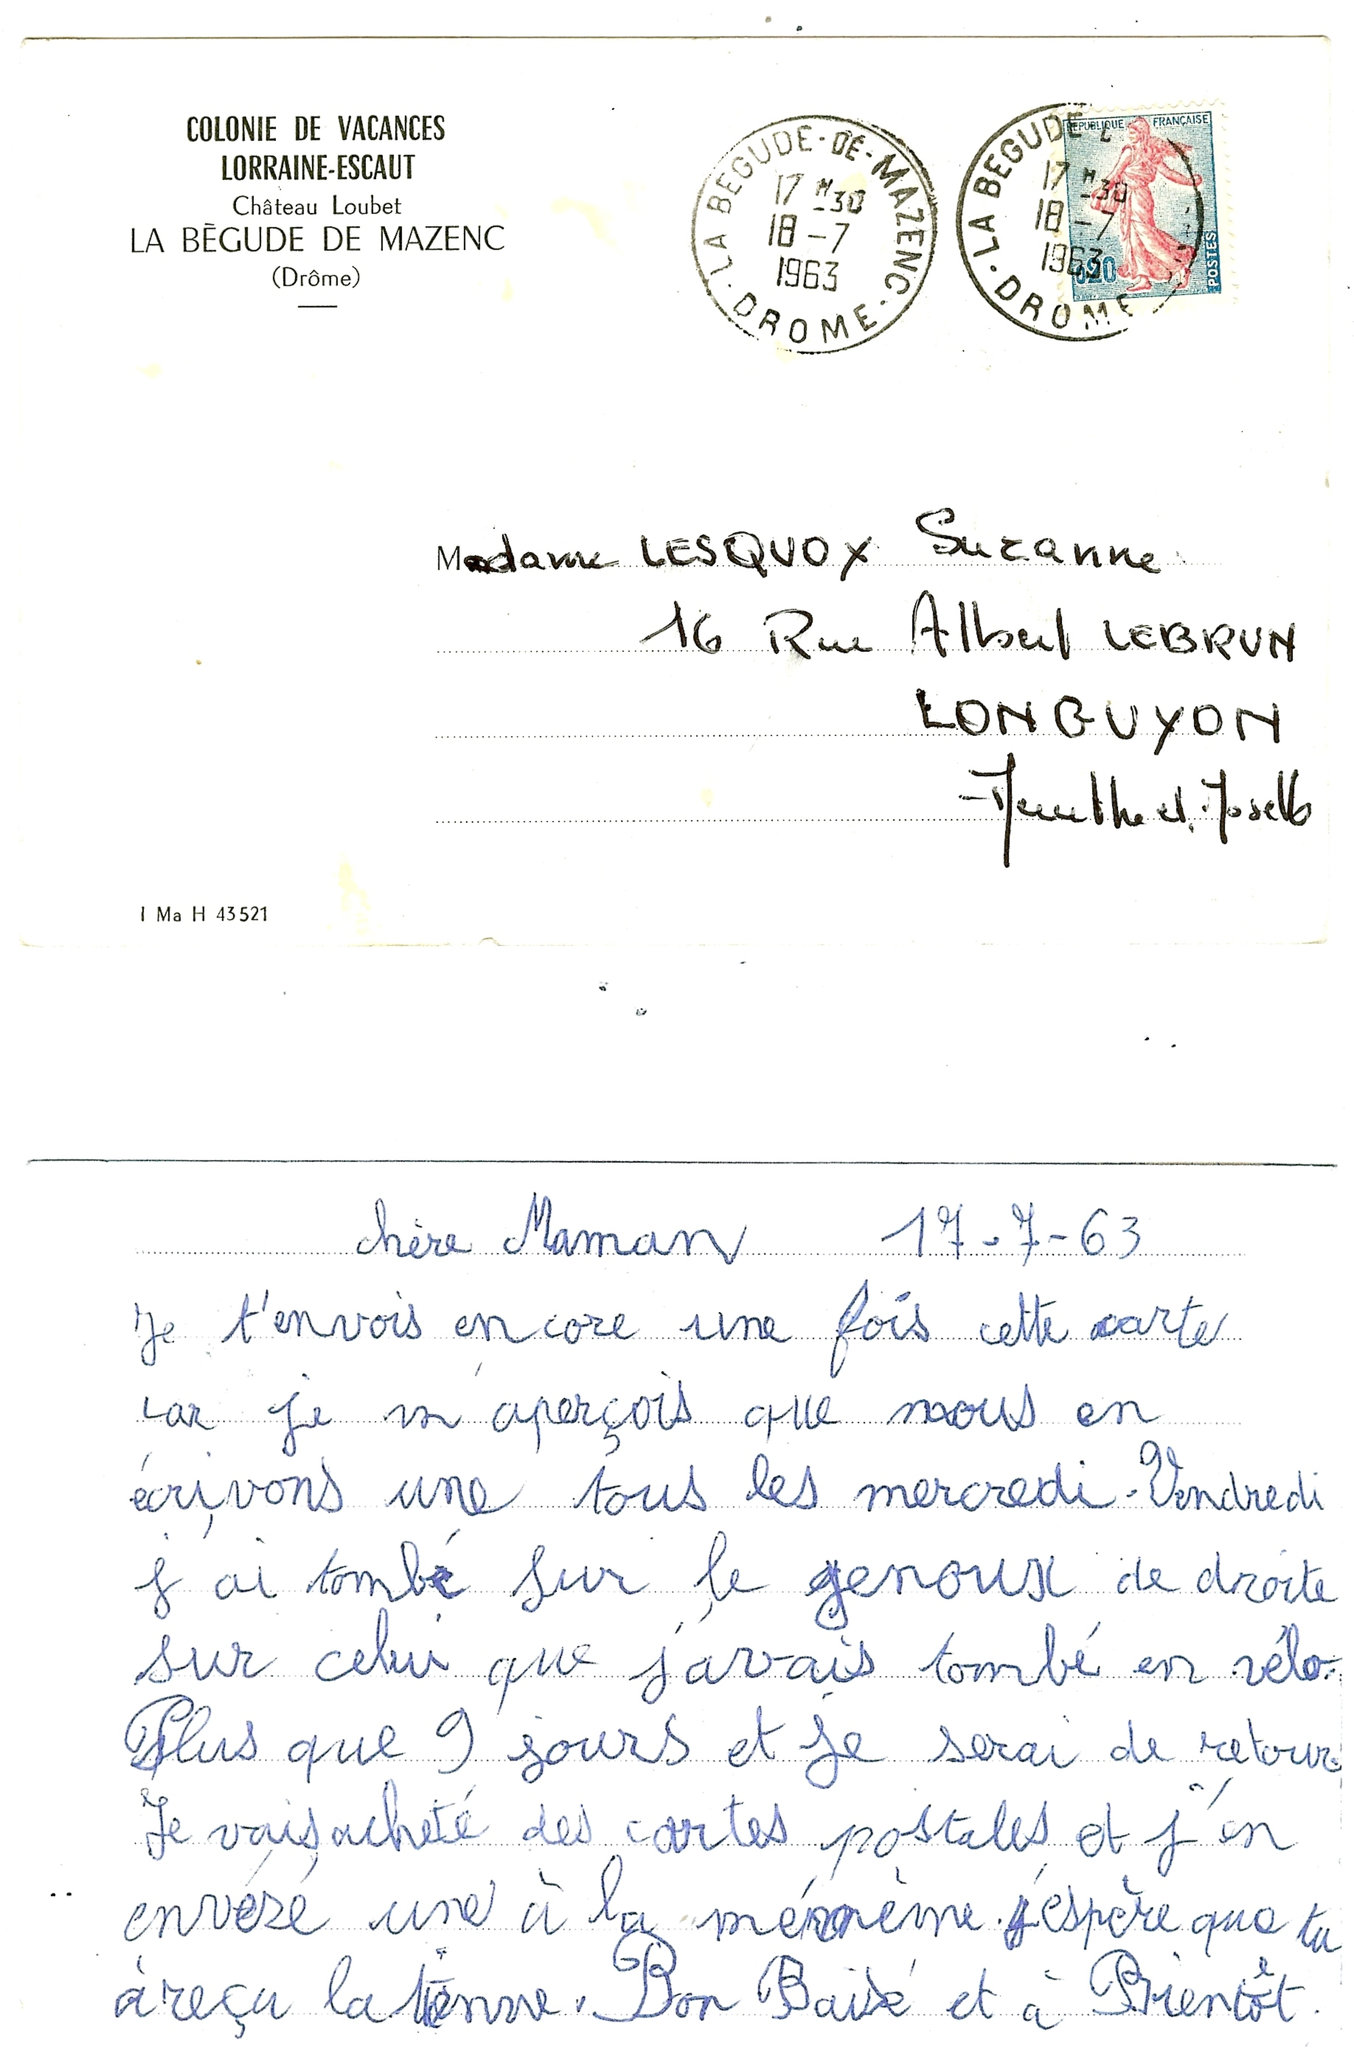 COLONIE DE VACANCES
LORRAINE-ESCAUT
Château Loubet
LA BÈGUDE DE MAZENC
(Drôme)
LA BEGUDE-DE-MAZENC
17 H -30
18 -7
1963
DROME
LA BEGUDE
17 H -30
18 -7
1963
DROME
REPUBLIQUE FRANÇAISE
0,20
POSTES
Madame LESQUOX Suzanne
16 Rue Albert LEBRUN
LONGUYON
Meurthe et Moselle
I Ma H 43521
chère Maman 17-7-63
Je t'envois encore une fois cette carte
car je m'aperçois que nous en
écrivons une tous les mercredi. Vendredi
j'ai tombé sur le genoux de droite
sur celui que j'avais tombé en vélo.
Plus que 9 jours et je serai de retour.
Je vais acheté des cartes postales et j'en
envéré une à la mémème. j'espère que tu
à reçu la tienne. Bon Baisé et à Bientôt.